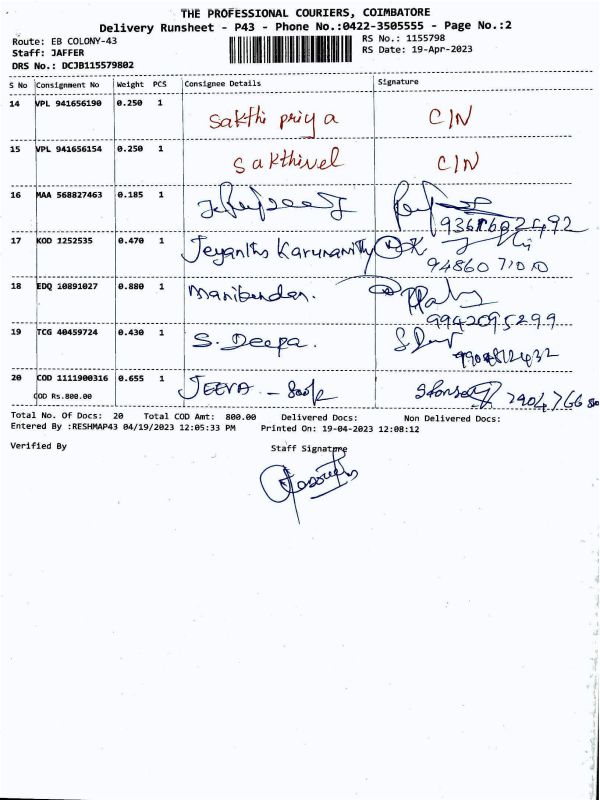 THE PROFESSIONAL COURIERS, COIMBATORE
Delivery Runsheet - P43 - Phone No.:0422-3505555 - Page No.:2
Route: EB COLONY-43 RS No.: 1155798
Staff: JAFFER RS Date: 19-Apr-2023
DRS No.: DCJB115579802
S No Consignment No Weight PCS Consignee Details Signature
14 VPL 941656190 0.250 1 Sakthi priya C/N
15 VPL 941656154 0.250 1 Sakthivel C/N
16 MAA 568827463 0.185 1
17 KOD 1252535 0.470 1 Jeyanthi Karunanithy
94860 71010
18 EDQ 10891027 0.880 1 Manibendan.
9942095299
19 TCG 40459724 0.430 1 S. Deepa.
20 COD 1111900316 0.655 1 JEEVA - 800/-
COD Rs.800.00
Total No. Of Docs: 20 Total COD Amt: 800.00 Delivered Docs: Non Delivered Docs:
Entered By :RESHMAP43 04/19/2023 12:05:33 PM Printed On: 19-04-2023 12:08:12
Verified By Staff Signature